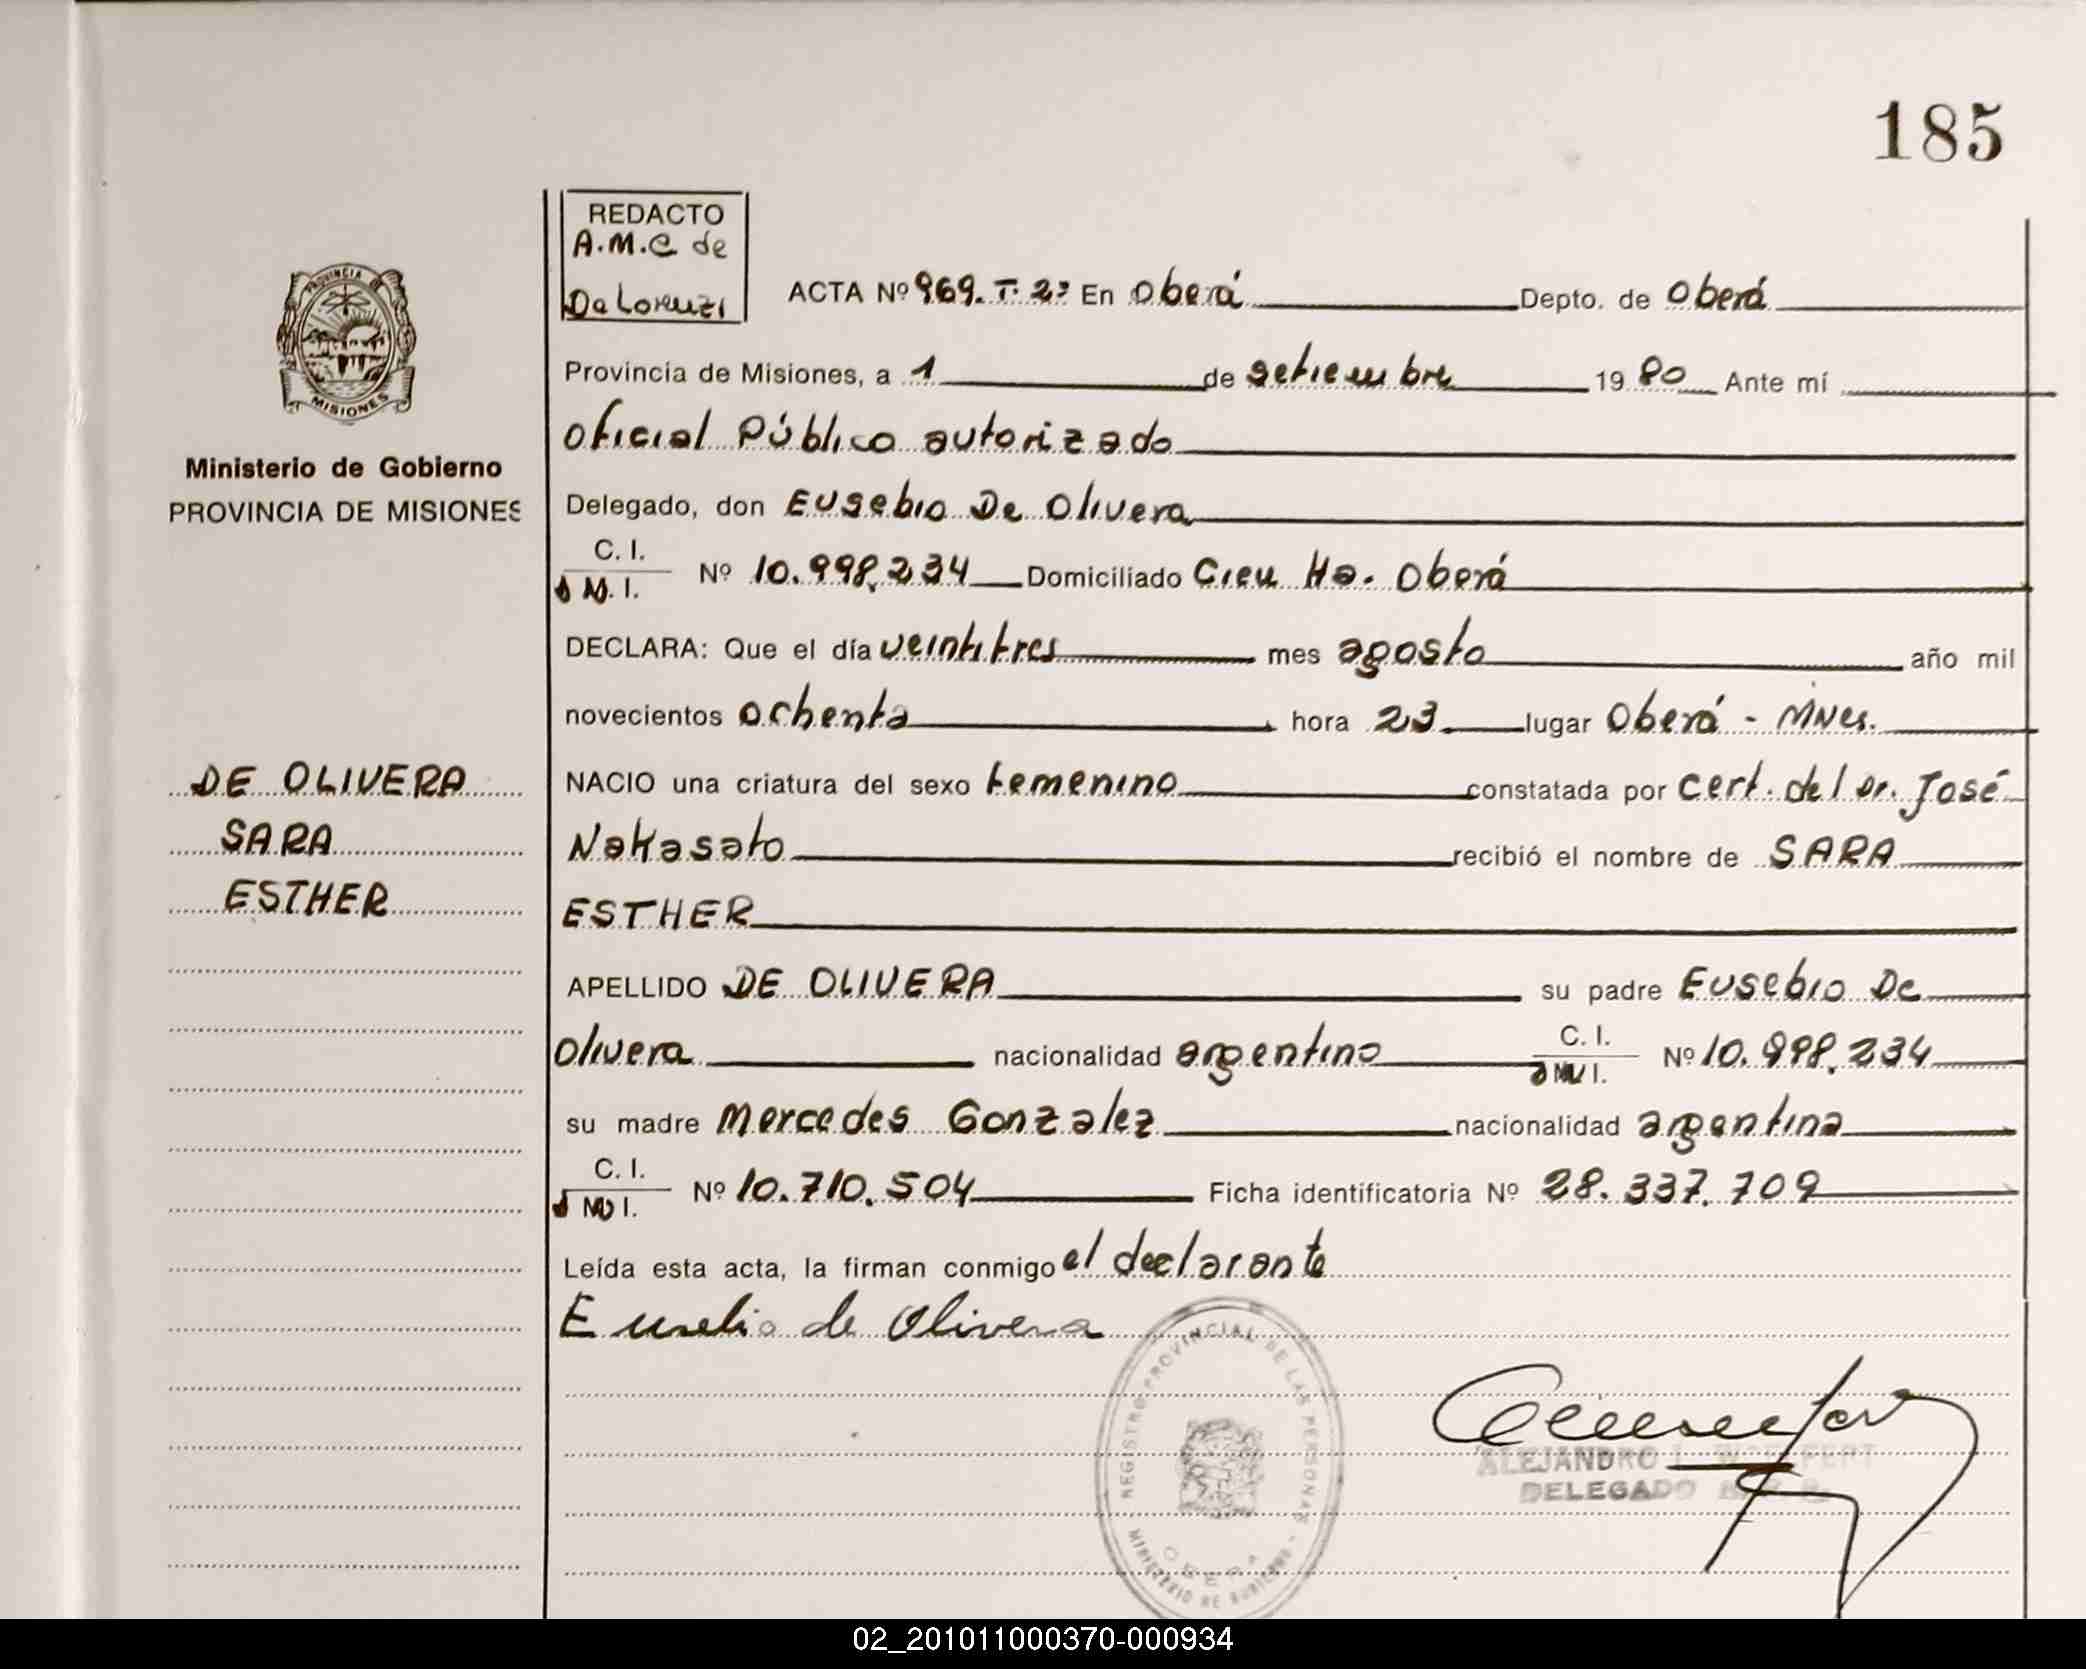 185
REDACTO
A.M.C de
De Lorenzi
ACTA Nº 969. T. 2º En Oberá Depto. de Oberá
Provincia de Misiones, a 1 de setiembre 1980 Ante mí
Oficial Público autorizado
Delegado, don Eusebio De Olivera
C. I. M. I. Nº 10.998.234 Domiciliado Cien Ha. Oberá
DECLARA: Que el día veintitres mes agosto año mil
novecientos ochenta hora 23 lugar Oberá - Mnes.
NACIO una criatura del sexo femenino constatada por cert. del Dr. José
Nakasato recibió el nombre de SARA
ESTHER
APELLIDO DE OLIVERA su padre Eusebio De
Olivera nacionalidad argentino C. I. Nº 10.998.234
su madre Mercedes Gonzalez nacionalidad argentina
C. I. Nº 10.710.504 Ficha identificatoria Nº 28.337.709
Leída esta acta, la firman conmigo el declarante
Eusebio de Olivera
PROVINCIA DE
MISIONES
Ministerio de Gobierno
PROVINCIA DE MISIONES
DE OLIVERA
SARA
ESTHER
REGISTRO PROVINCIAL DE LAS PERSONAS
OBERA
MINISTERIO DE GOBIERNO
ALEJANDRO
DELEGADO
02_201011000370-000934